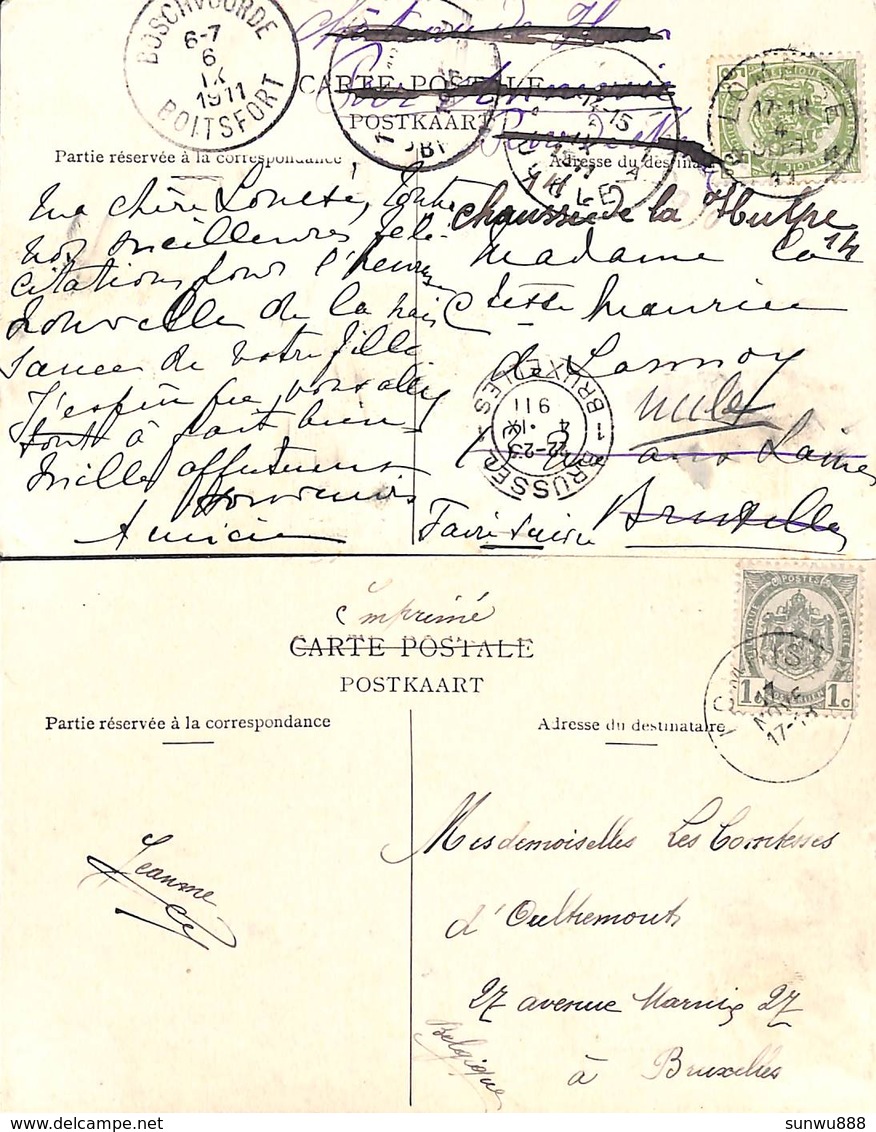 BOSCHVOORDE
6-7
6
IX
1911
BOITSFORT
CARTE POSTALE
POSTKAART
Partie réservée à la correspondance
Adresse du destinataire
Ma chère Louise, toutes
nos meilleures féli-
citations pour l'heureuse
nouvelle de la nais
sance de votre fille
J'espère que vous allez
tout à fait bien
Mille affectueux
souvenirs
chaussée de la Hulpe
14
Madame la
Ctesse Maurice
de Lannoy
aux Laines
Bruxelles
BRUSSEL 1 BRUXELLES 1
22-23
4 IX
911
UCCLE
17-18
4
11
Imprimé
CARTE POSTALE
POSTKAART
Partie réservée à la correspondance
Adresse du destinataire
POSTES
BELGIQUE
BELGIË
1 c 1 c
17-18
Jeanne
Mesdemoiselles Les Comtesses
d'Oultremont
27 avenue Marnix 27
à Bruxelles
Belgique
sunwu888